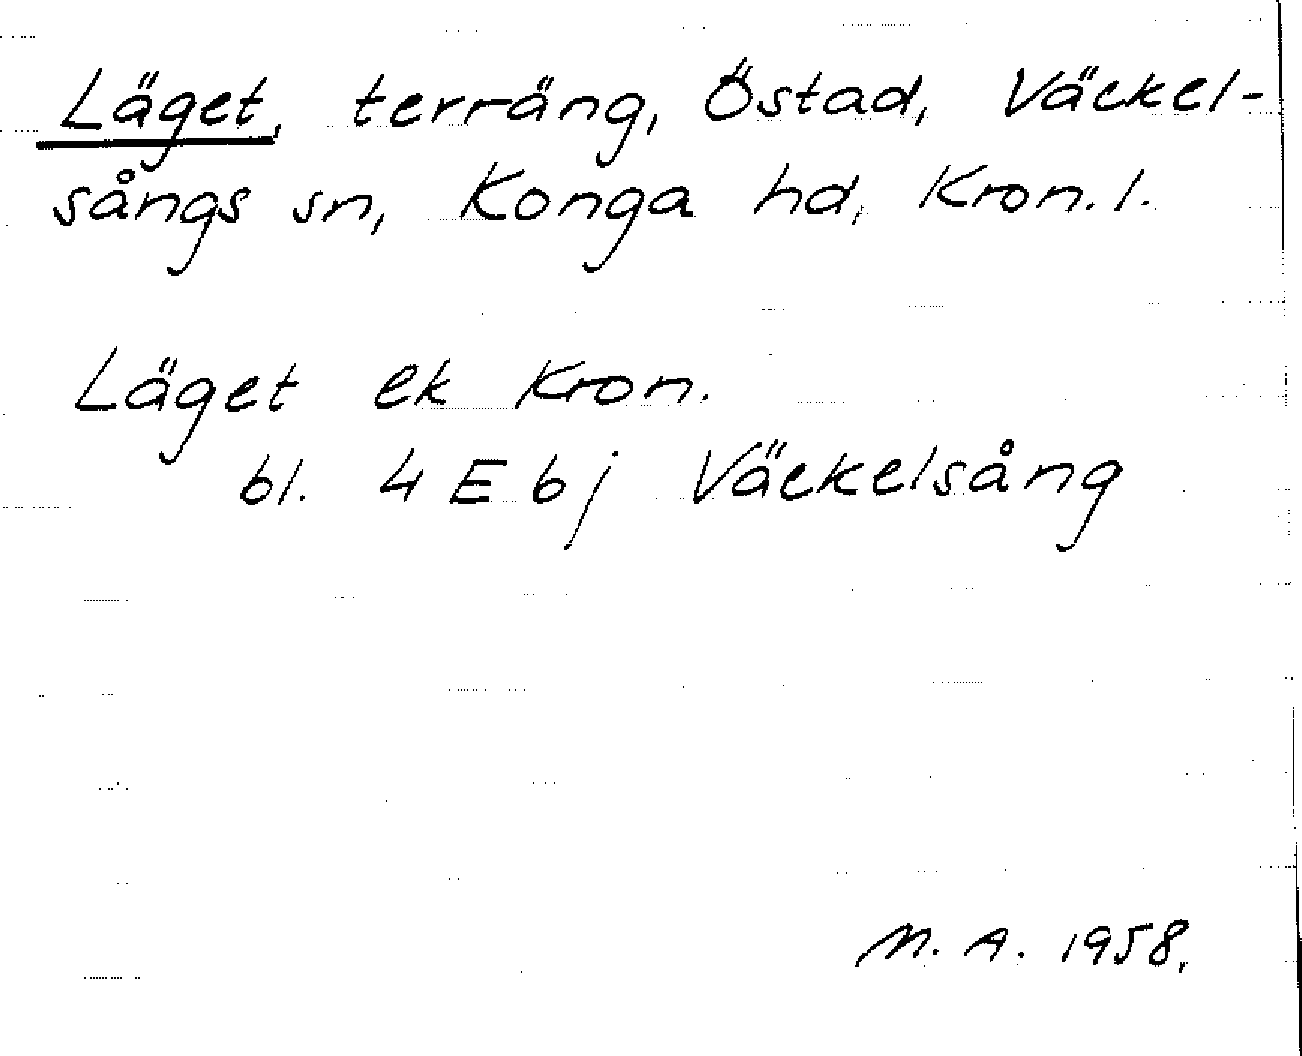 Läget, terräng, Östad, Väckel-
sångs sn, Konga hd, Kron. l.
Läget ek Kron.
bl. 4 E bj Väckelsång
M. A. 1958.